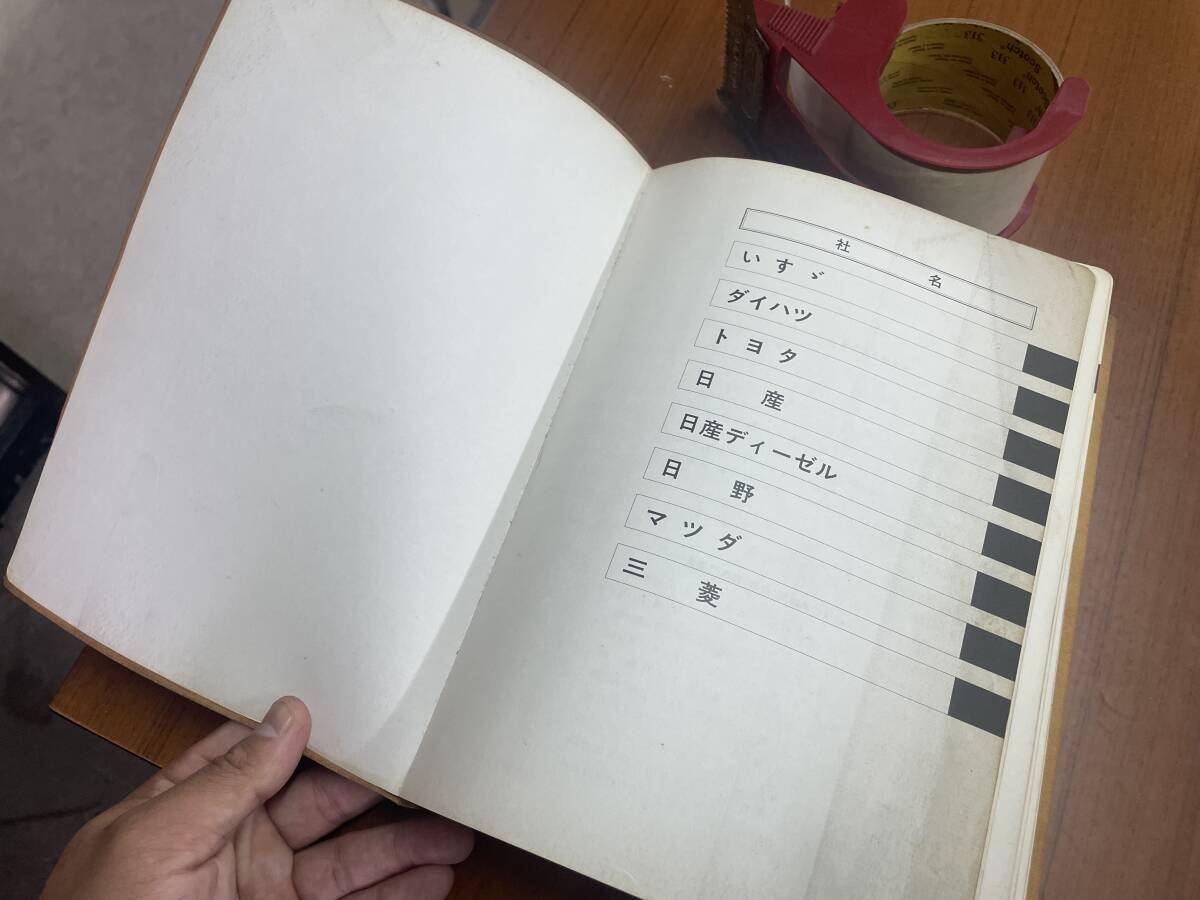 Scotch® 313
Scotch® 313
社　名
いすゞ
ダイハツ
トヨタ
日　産
日産ディーゼル
日　野
マツダ
三　菱